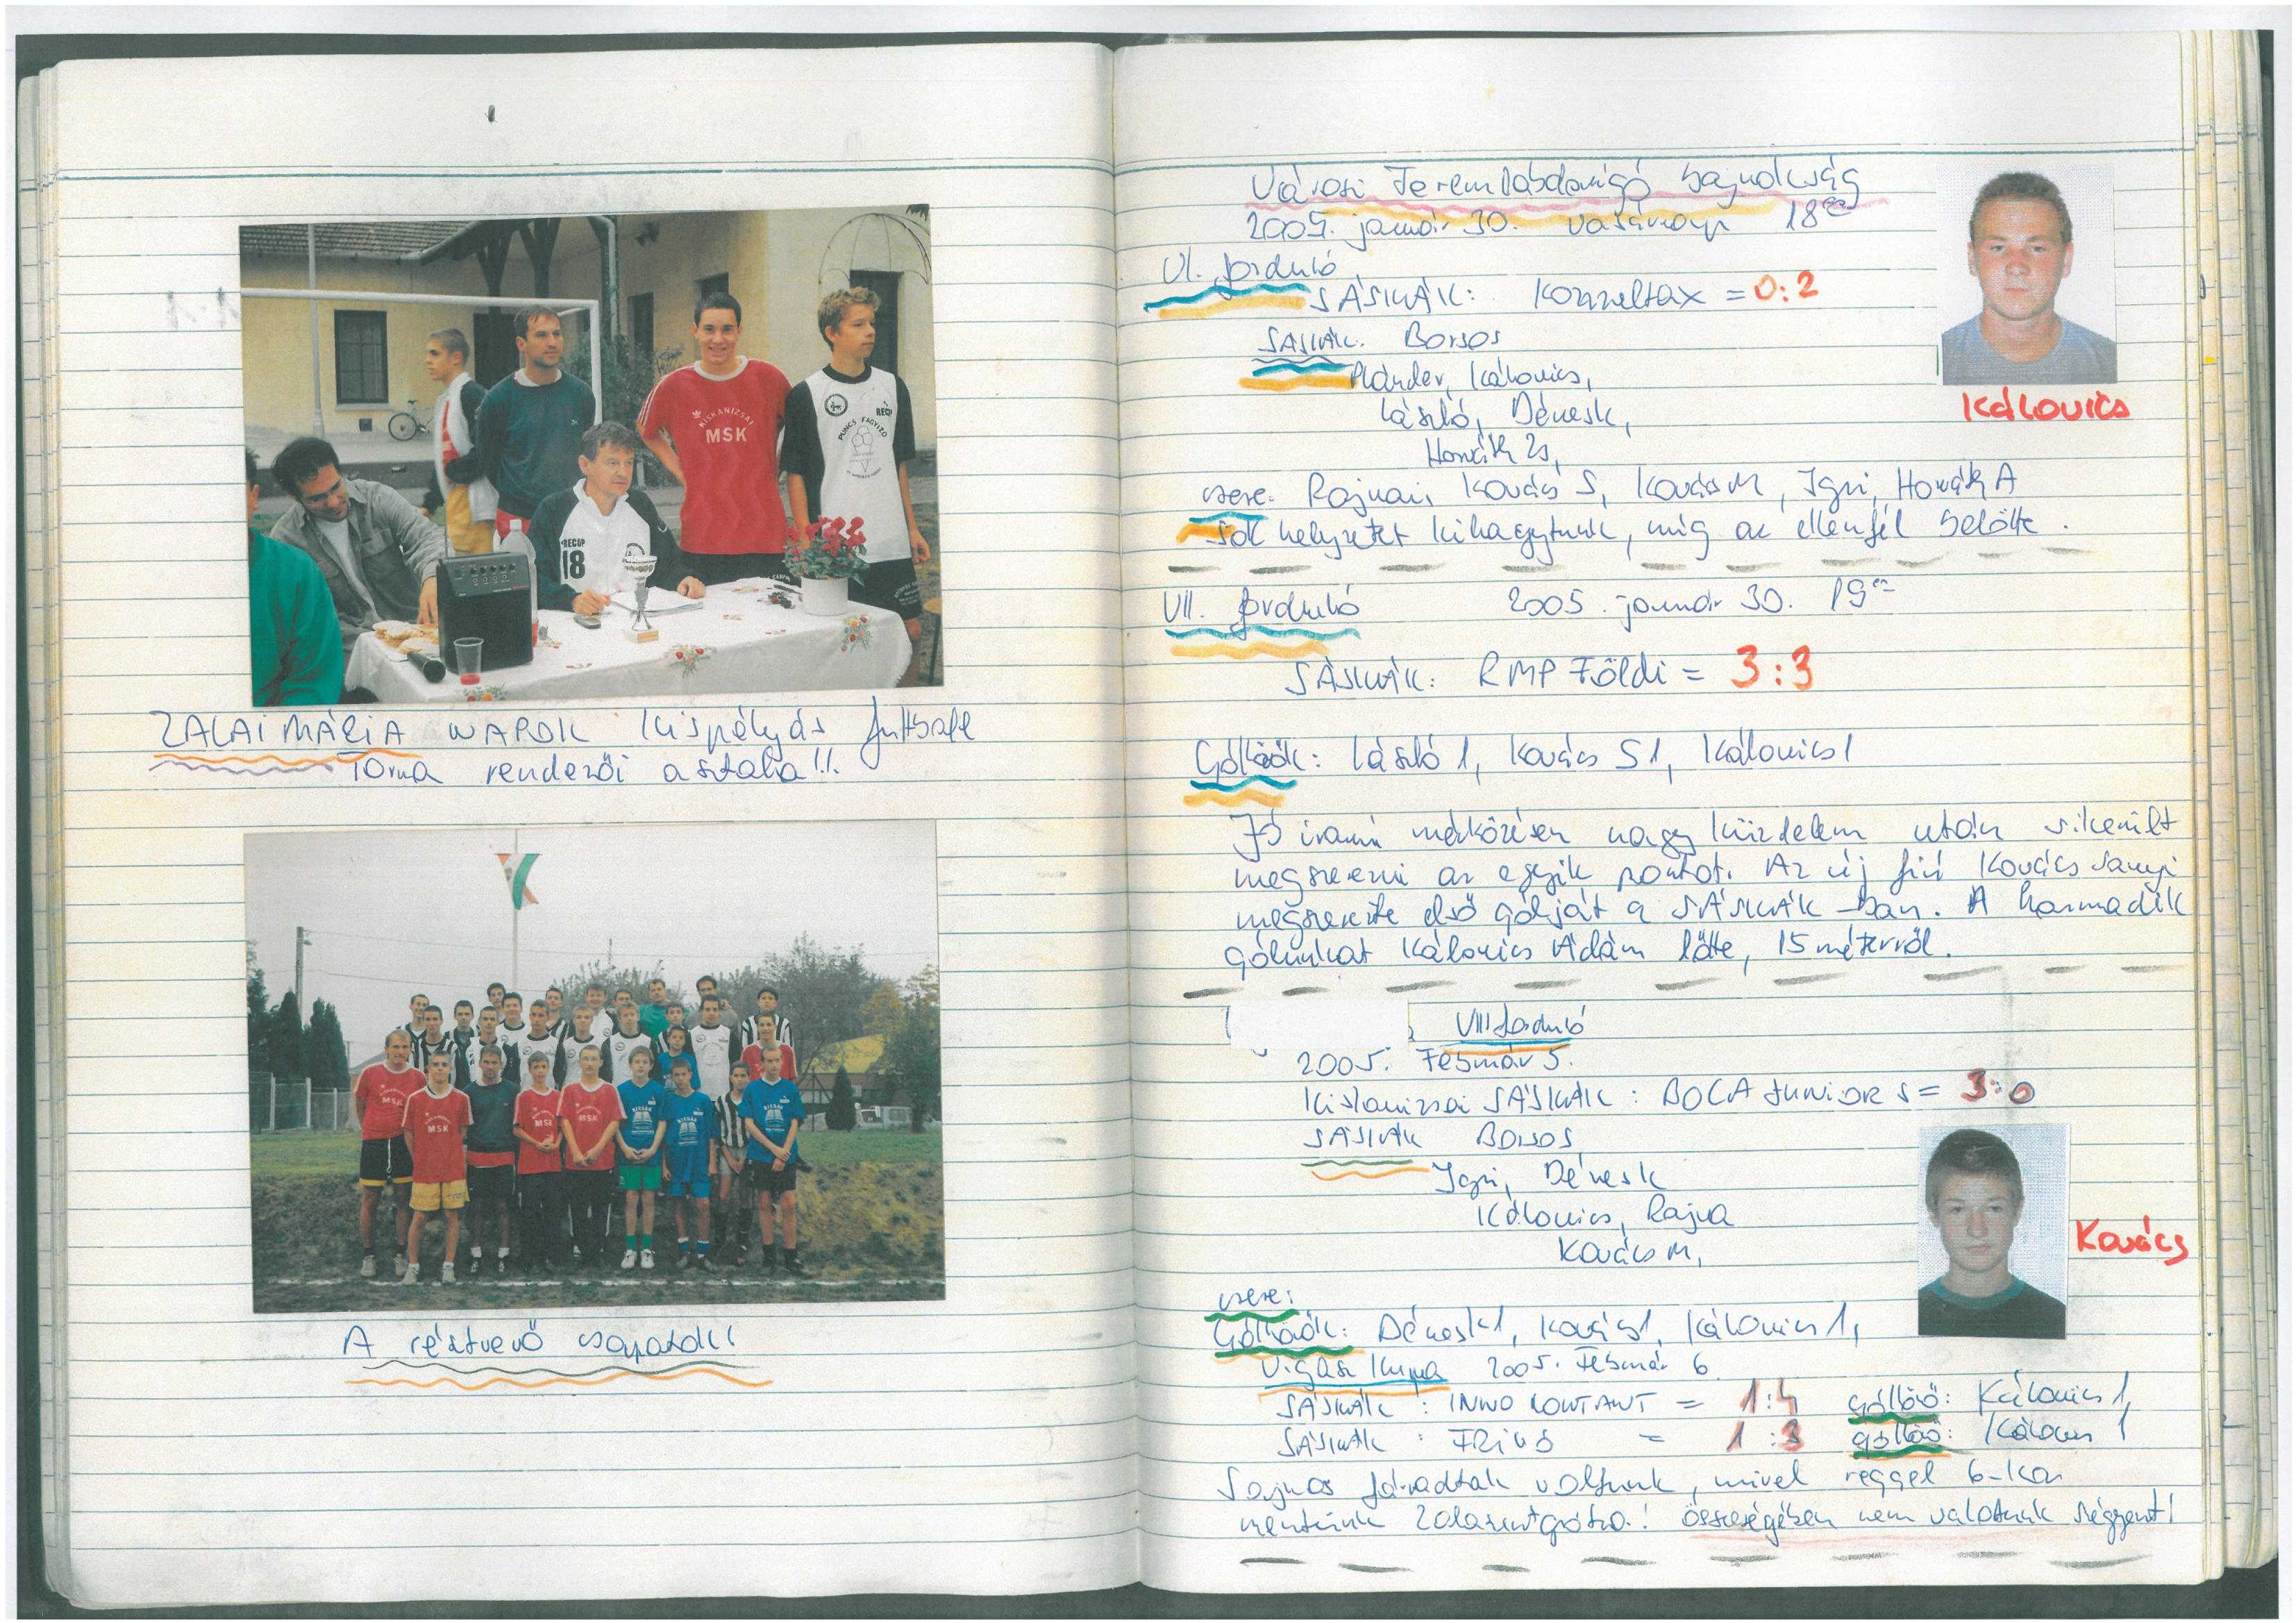 KISKANIZSAI
MSK
PUNCS FAGYIZÓ
RECOP
18
ZALAI MÁRIA WAPDK kispályás futball
Torna rendezői asztala!!.
MSK
MSK
MSK
MSK
A résztvevő csapatok!
Városi Teremlabdarúgó bajnokság
2005. január 30. vasárnap 18
VI. forduló
SÁSKÁK: Konzeltax = 0:2
SÁSKÁK. Borsos
Plánder, Kálovics,
László, Dénesk,
Horváth Zs,
Kálovics
csere: Rajnai, Kovács S, Kovács M, Igri, Horváth A
Sok helyzetet kihagytunk, míg az ellenfél belőtte.
VII. forduló 2005. január 30. 19
SÁSKÁK: RMP Földi = 3:3
Góllövők: László 1, Kovács S 1, Kálovics 1
Jó iramú mérkőzésen nagy küzdelem után sikerült
megszerezni az egyik pontot. Az új fiú Kovács Samyi
megszerezte első gólját a SÁSKÁK-ban. A harmadik
gólunkat Kálovics Ádám lőtte, 15 méterről.
VIII forduló
2005. Február 5.
Kiskanizsai SÁSKÁK : BOCA JUNIORS = 3:0
SÁSKÁK Borsos
Igri, Dénesk
Kálovics, Rajna
Kovács M,
Kovács
csere:
Góllövők: Dénesk 1, Kovács 1, Kálovics 1,
Vigasz Kupa 2005. Február 6.
SÁSKÁK : INNO KONTAKT = 1:4 góllövő: Kálovics 1,
SÁSKÁK : FRIVÓ = 1:3 góllövő: Kálovics 1
Sajnos fáradtak voltunk, mivel reggel 6-kor
mentünk Zalaszentgrótra! összességében nem valottunk szégyent!